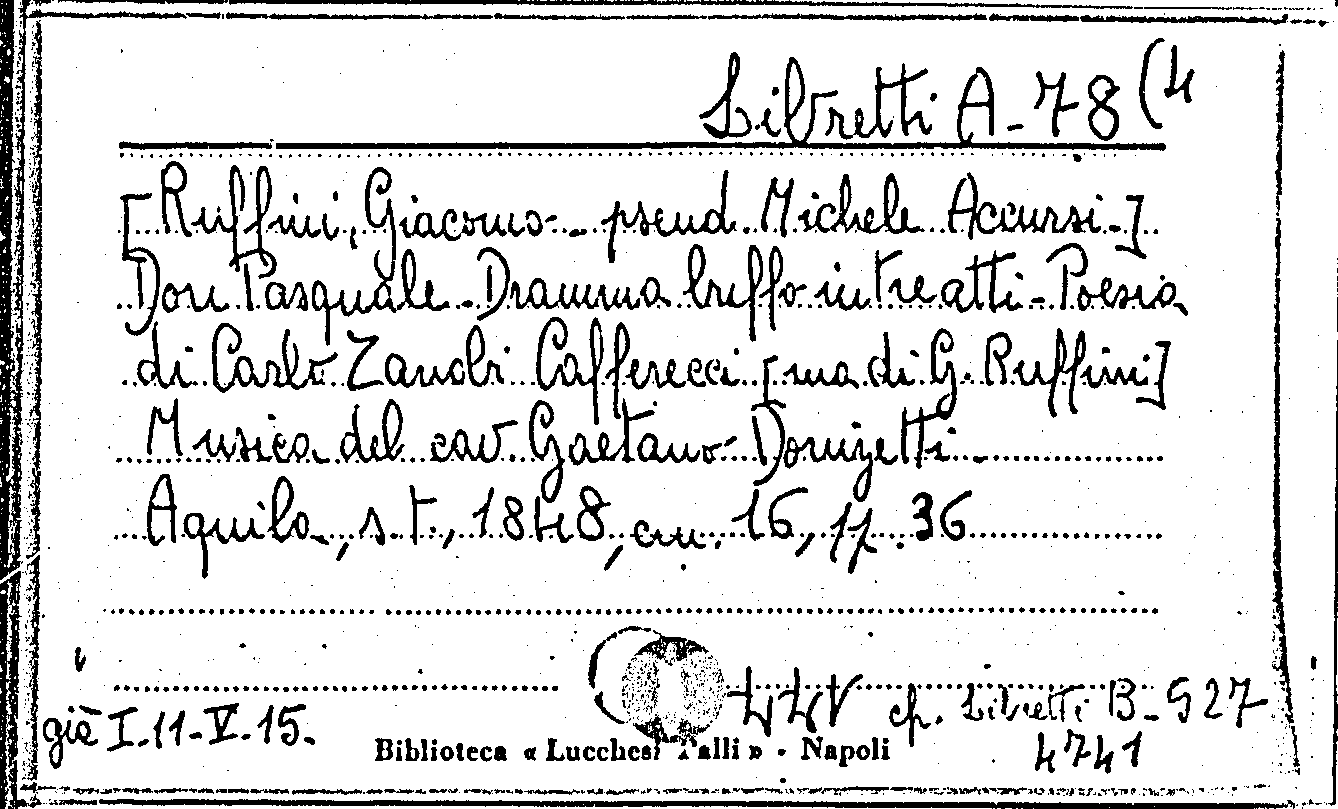 Libretti A-78(4
[Ruffini, Giacomo - pseud. Michele Accursi-]
Don Pasquale - Dramma buffo in tre atti - Poesia
di Carlo Zanobi Cafferecci [ma di G. Ruffini]
Musica del cav. Gaetano Donizetti -
Aquila, s.t., 1848, cm. 16, pp. 36
già I-11-V-15.
cfr. Libretti B-927
4741
Biblioteca « Lucchesi Palli » - Napoli